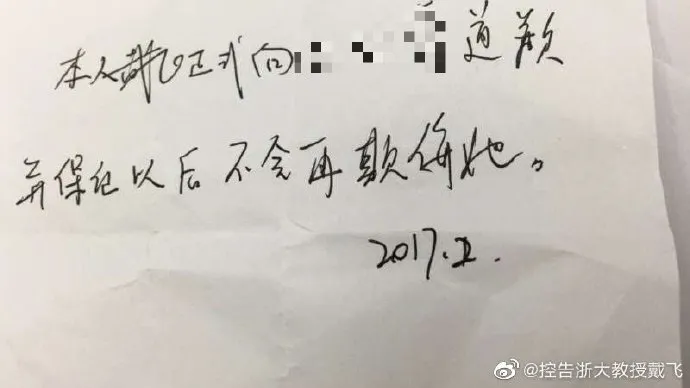 本人戴飞正式向 道歉
并保证以后不会再欺侮她。
2017.2.
@控告浙大教授戴飞